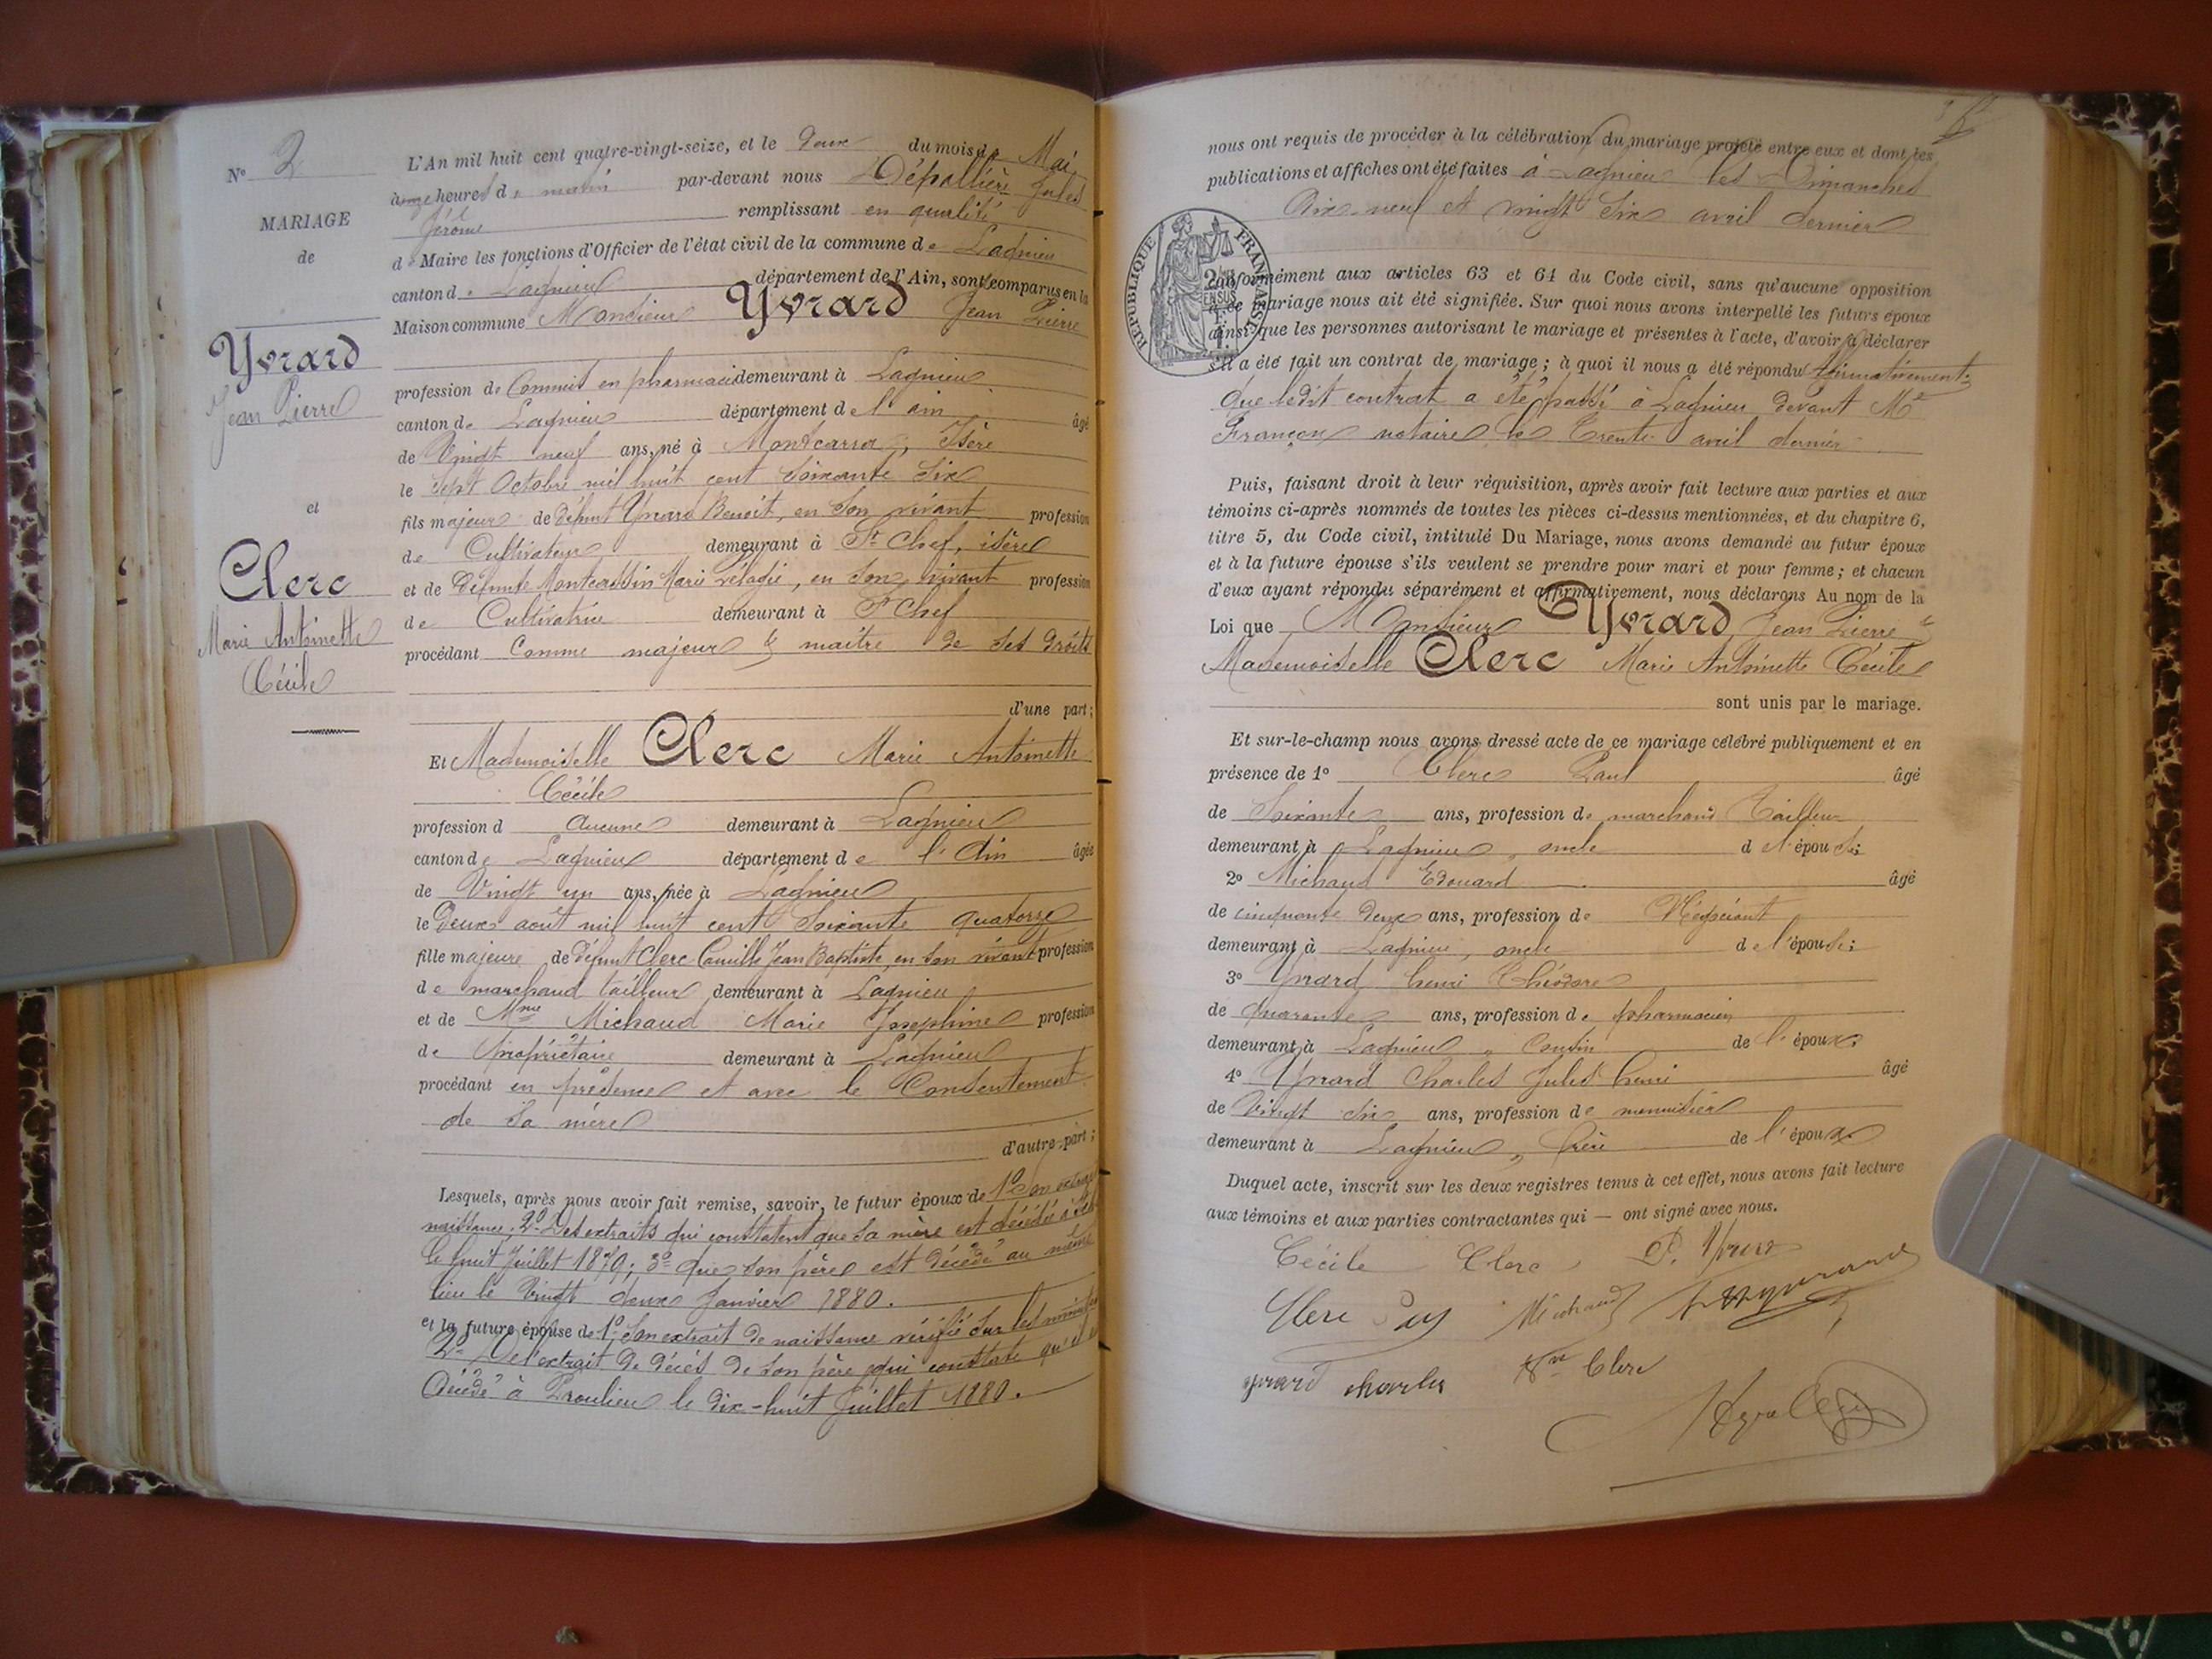 N° 2
MARIAGE
de
Yvrard
Jean Pierre
et
Clerc
Marie Antoinette
Cécile
L'An mil huit cent quatre-vingt-seize, et le Deux du mois de Mai
à onze heures d u matin par-devant nous Dépollière Jules
Jérôme remplissant en qualité
de Maire les fonctions d'Officier de l'état civil de la commune de Lagnieu
canton de Lagnieu département de l'Ain, sont comparus en la
Maison commune Monsieur Yvrard Jean Pierre
profession de Commis en pharmacie demeurant à Lagnieu
canton de Lagnieu département de l'ain âgé
de Vingt neuf ans, né à Montcarra, Isère
le Sept Octobre mil huit cent soixante six
fils majeur de défunt Yvrard Benoit, en son vivant profession
de Cultivateur demeurant à St Chef, isère
et de défunte Montcassin Marie Pélagie, en son vivant profession
de Cultivatrice demeurant à St Chef
procédant Comme majeur & maître de ses droits
d'une part;
Et Mademoiselle Clerc Marie Antoinette
Cécile
profession d Aucune demeurant à Lagnieu
canton de Lagnieu département de l'Ain âgée
de Vingt un ans, née à Lagnieu
le Deux août mil huit cent soixante quatorze
fille majeure de défunt Clerc Camille Jean Baptiste, en son vivant profession
de marchand tailleur demeurant à Lagnieu
et de Mme Michaud Marie Josephine profession
de propriétaire demeurant à Lagnieu
procédant en présence et avec le Consentement
de sa mère
d'autre part;
Lesquels, après nous avoir fait remise, savoir, le futur époux de 1° Son extrait
naissance; 2° Des extraits qui constatent que sa mère est décédée à
le huit Juillet 1879; 3° que son père est décédé au même
lieu le Vingt deux Janvier 1880.
et la future épouse de 1° Son extrait de naissance vérifié sur les
2° De l'extrait de décés de son père qui constate qu'il
Décédé à Proulieu le dix-huit Juillet 1880.
nous ont requis de procéder à la célébration du mariage projeté entre eux et dont les
publications et affiches ont été faites à Lagnieu les Dimanches
Dix-neuf et vingt six avril dernier
RÉPUBLIQUE FRANÇAISE
conformément aux articles 63 et 64 du Code civil, sans qu'aucune opposition
à ce mariage nous ait été signifiée. Sur quoi nous avons interpellé les futurs époux
ainsi que les personnes autorisant le mariage et présentes à l'acte, d'avoir à déclarer
s'il a été fait un contrat de mariage; à quoi il nous a été répondu Affirmativement;
Que ledit contrat a été passé à Lagnieu devant Me
Françon notaire le Trente avril dernier
Puis, faisant droit à leur réquisition, après avoir fait lecture aux parties et aux
témoins ci-après nommés de toutes les pièces ci-dessus mentionnées, et du chapitre 6,
titre 5, du Code civil, intitulé Du Mariage, nous avons demandé au futur époux
et à la future épouse s'ils veulent se prendre pour mari et pour femme; et chacun
d'eux ayant répondu séparément et affirmativement, nous déclarons Au nom de la
Loi que Monsieur Yvrard Jean Pierre &
Mademoiselle Clerc Marie Antoinette Cécile
sont unis par le mariage.
Et sur-le-champ nous avons dressé acte de ce mariage célébré publiquement et en
présence de 1° Clerc Paul âgé
de Soixante ans, profession de marchand Tailleur
demeurant à Lagnieu, oncle de l'épouse;
2° Michaud Edouard âgé
de cinquante deux ans, profession de Négociant
demeurant à Lagnieu, oncle de l'épouse;
3° Yvrard henri Théodore
de quarante ans, profession de pharmacien
demeurant à Lagnieu, Cousin de l'époux;
4° Yvrard Charles Jules henri âgé
de Vingt six ans, profession de menuisier
demeurant à Lagnieu, frère de l'époux
Duquel acte, inscrit sur les deux registres tenus à cet effet, nous avons fait lecture
aux témoins et aux parties contractantes qui — ont signé avec nous.
Cécile Clerc P. Yvrard
Clerc Michaud
yvrard charles Vve Clerc